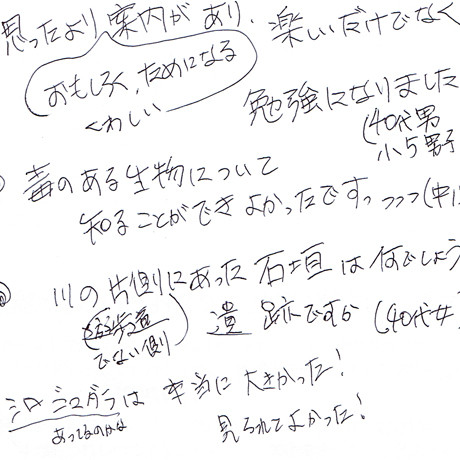 思ったより案内があり、楽しいだけでなく
おもしろく、ためになる
くわしい
勉強になりました
(40代男
小5男子
毒のある生物について
知ることができよかったですっ つつつ(中
川の片側にあった石垣は何でしょう
遊歩道
でない側)
遺跡ですか (40代女)
シロシュダラは本当に大きかった!
あってるのかな
見られてよかった!